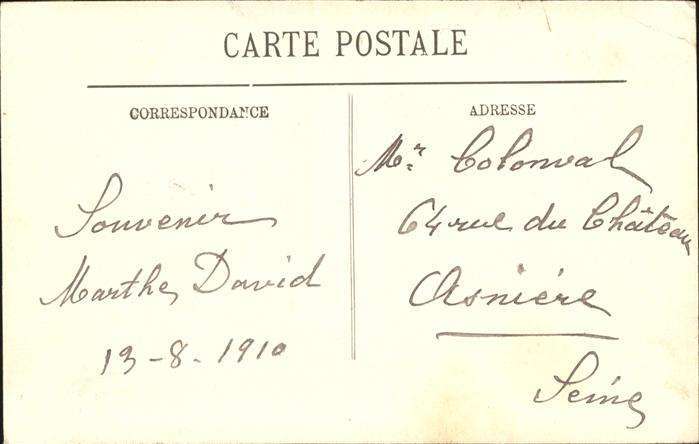 CARTE POSTALE
CORRESPONDANCE
Souvenir
Marthe David
13-8-1910
ADRESSE
Mr. Colonval
64 rue du Château
Asnière
Seine